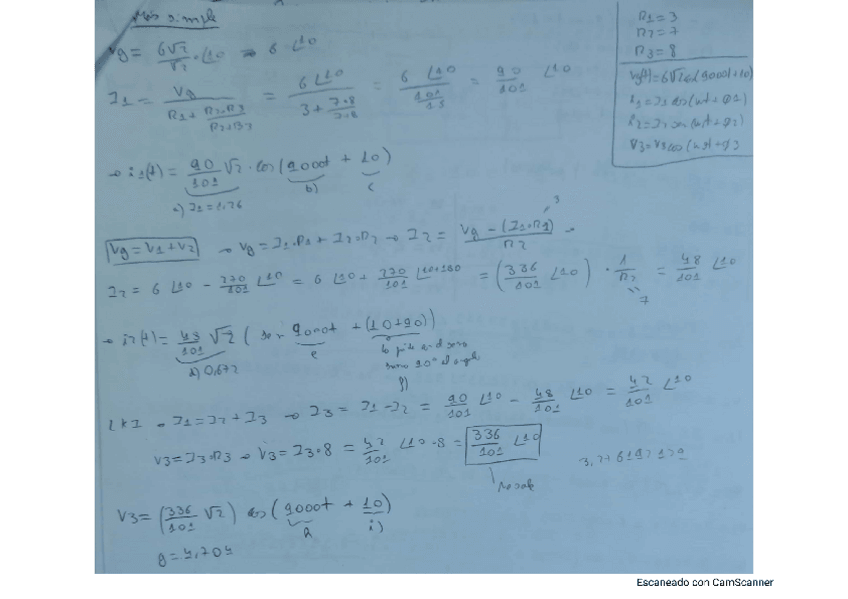 Más simple
Vg = 6√2/√2 · ∠10 → 6 ∠10
I1 = Vg / (R1 + R2·R3/(R2+R3)) = 6∠10 / (3 + 7·8/7·8) = 6 ∠10 / (101/15) = 90/101 ∠10
→ i1(t) = 90/101 √2 · cos(9000t + 10)
b) c
a) I1 = 1,26
Vg = V1 + V2 → Vg = I1·R1 + I2·R2 → I2 = Vg − (I1·R1) / R2
3
I2 = 6 ∠10 − 270/101 ∠10 = 6 ∠10 + 270/101 ∠10+180 = (336/101 ∠10) · 1/R2 = 48/101 ∠10
7
→ i2(t) = 48/101 √2 ( sen 9000t + (10+90))
d) 0,672
e
f)
LKI → I1 = I2 + I3 → I3 = I1 − I2 = 90/101 ∠10 − 48/101 ∠10 = 42/101 ∠10
V3 = I3·R3 → V3 = I3·8 = 42/101 ∠10 · 8 = 336/101 ∠10
V3 = (336/101 √2) cos (9000t + 10)
h i)
g = 4,704
R1 = 3
R2 = 7
R3 = 8
Vg(t) = 6√2 cos(9000t + 10)
i1 = I1 cos(wt + φ1)
i2 = I2 sen(wt + φ2)
V3 = V3 cos(wt + φ3
Escaneado con CamScanner